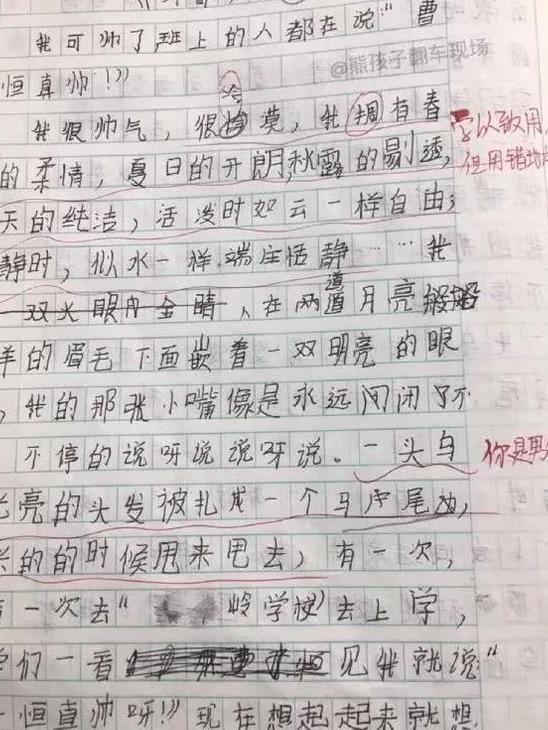 我可帅了班上的人都在说“曹
恒真帅!”
@熊孩子翻车现场
冷
我很帅气，很 漠，我拥有春
学以致用
的柔情，夏日的开朗,秋露的剔透，
但用错地
天的纯洁，活泼时如云一样自由；
静时，似水一样端庄恬静……我
双火眼金睛，在两道道月亮般
的眉毛下面嵌着一双明亮的眼
，我的那张小嘴像是永远间闭了不
不停的说呀说说呀说。一头乌
你是男
亮的头发被扎成一个马尾
的的时候甩来甩去，有一次，
一次去“ 岭学校”去上学，
们一看 见我就说“
恒真帅呀!”现在想起起来就想